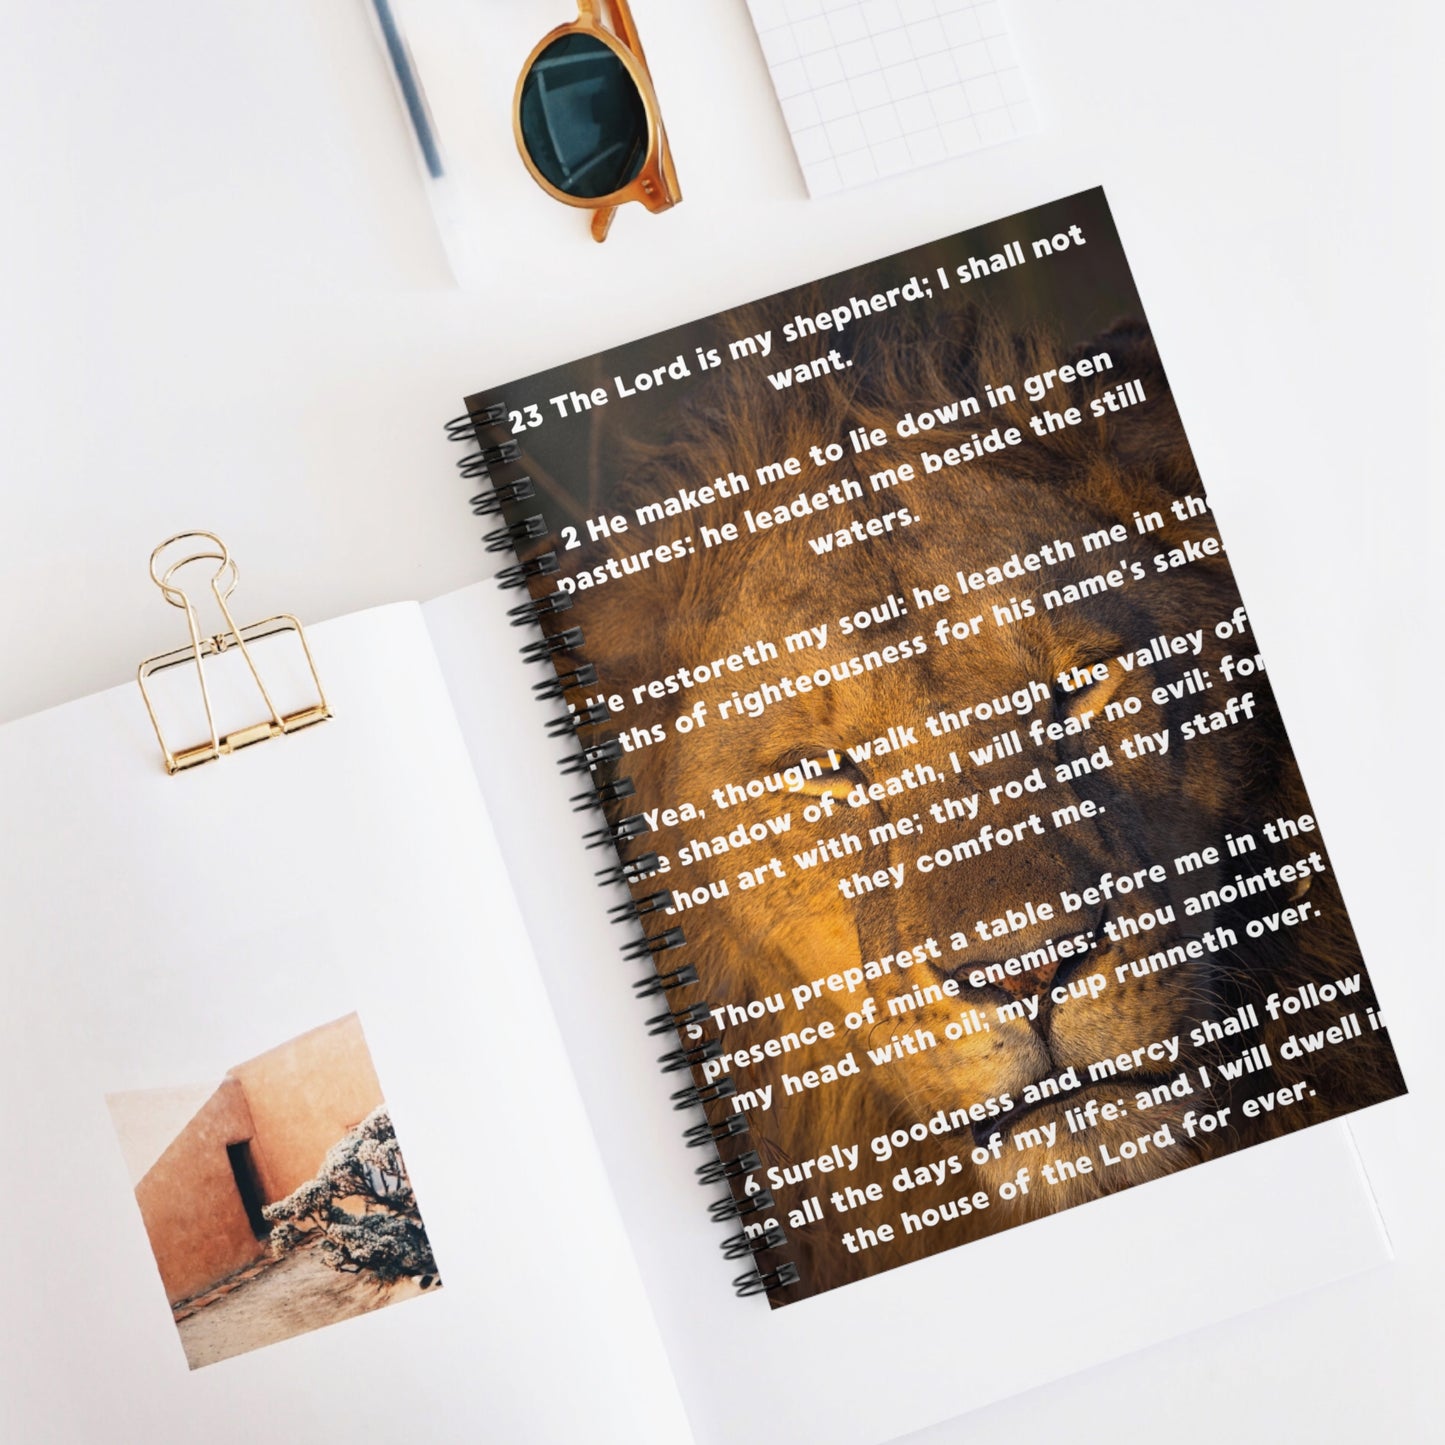 23 The Lord is my shepherd; I shall not
want.
2 He maketh me to lie down in green
pastures: he leadeth me beside the still
waters.
He restoreth my soul: he leadeth me in the
ths of righteousness for his name's sake.
4 Yea, though I walk through the valley of
the shadow of death, I will fear no evil: for
thou art with me; thy rod and thy staff
they comfort me.
5 Thou preparest a table before me in the
presence of mine enemies: thou anointest
my head with oil; my cup runneth over.
6 Surely goodness and mercy shall follow
me all the days of my life: and I will dwell in
the house of the Lord for ever.